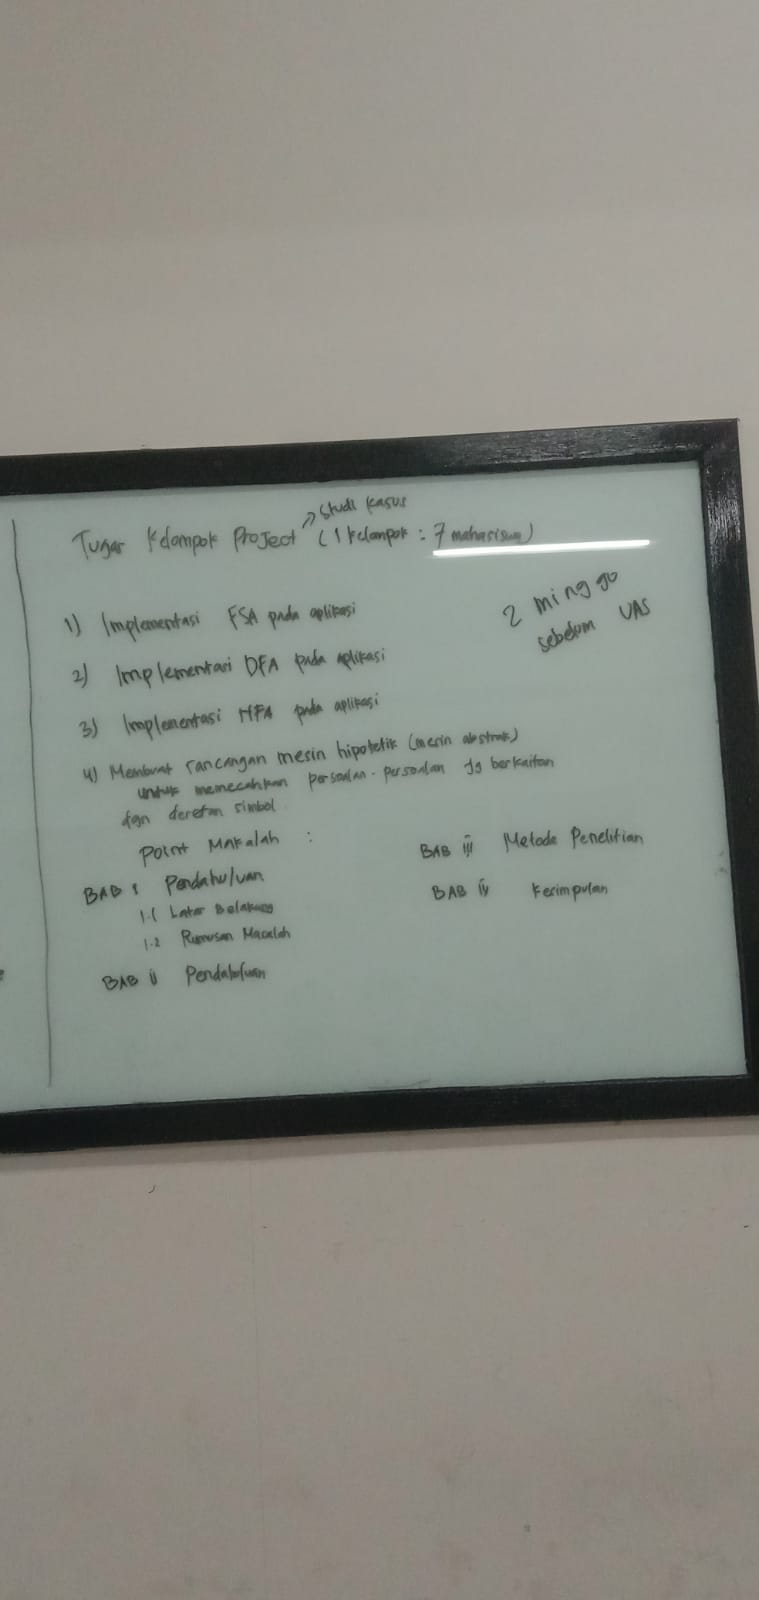 studi kasus
Tugas Kelompok Project (1 Kelompok : 7 mahasiswa)
2 minggu
sebelum UAS
1) Implementasi FSA pada aplikasi
2) Implementasi DFA pada aplikasi
3) Implementasi NFA pada aplikasi
4) Membuat rancangan mesin hipotetik (mesin abstrak)
untuk memecahkan persoalan-persoalan yg berkaitan
dgn deretan simbol.
Point Makalah :
BAB I Pendahuluan
1.1 Latar Belakang
1.2 Rumusan Masalah
BAB ii Pendahuluan
BAB iii Metode Penelitian
BAB iv Kesimpulan